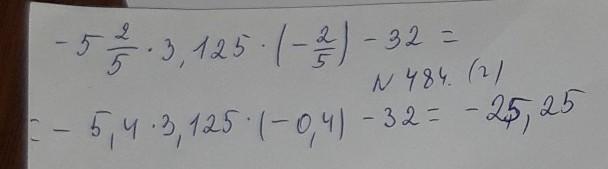 -5 2/5 · 3,125 · (-2/5) - 32 =
N 484. (2)
= - 5,4 · 3,125 · (-0,4) - 32 = -25,25